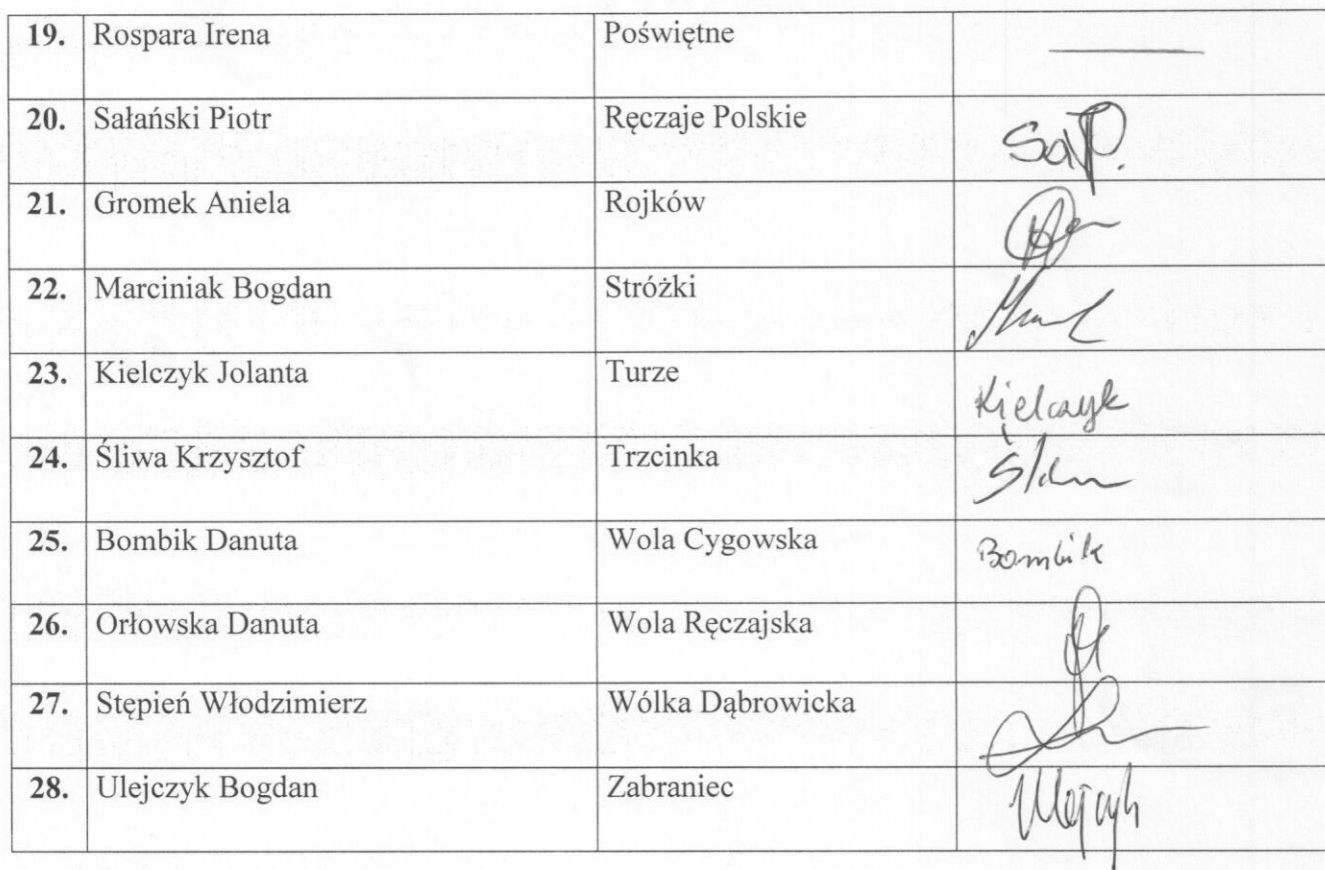 19. Rospara Irena Poświętne
20. Sałański Piotr Ręczaje Polskie SałP.
21. Gromek Aniela Rojków
22. Marciniak Bogdan Stróżki
23. Kielczyk Jolanta Turze Kielczyk
24. Śliwa Krzysztof Trzcinka
25. Bombik Danuta Wola Cygowska Bombik
26. Orłowska Danuta Wola Ręczajska
27. Stępień Włodzimierz Wólka Dąbrowicka
28. Ulejczyk Bogdan Zabraniec